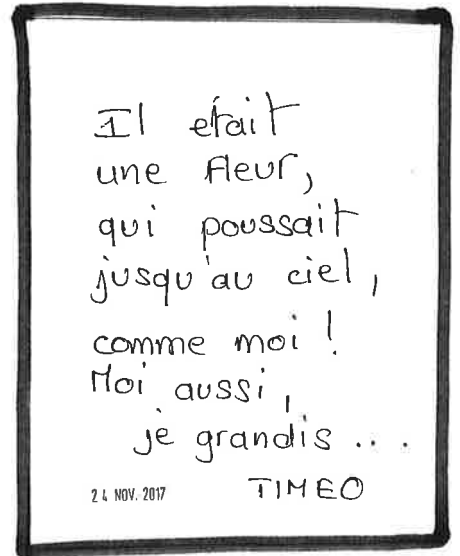 Il était
une fleur,
qui poussait
jusqu'au ciel,
comme moi !
Moi aussi,
je grandis ...
24 NOV. 2017 TIMEO